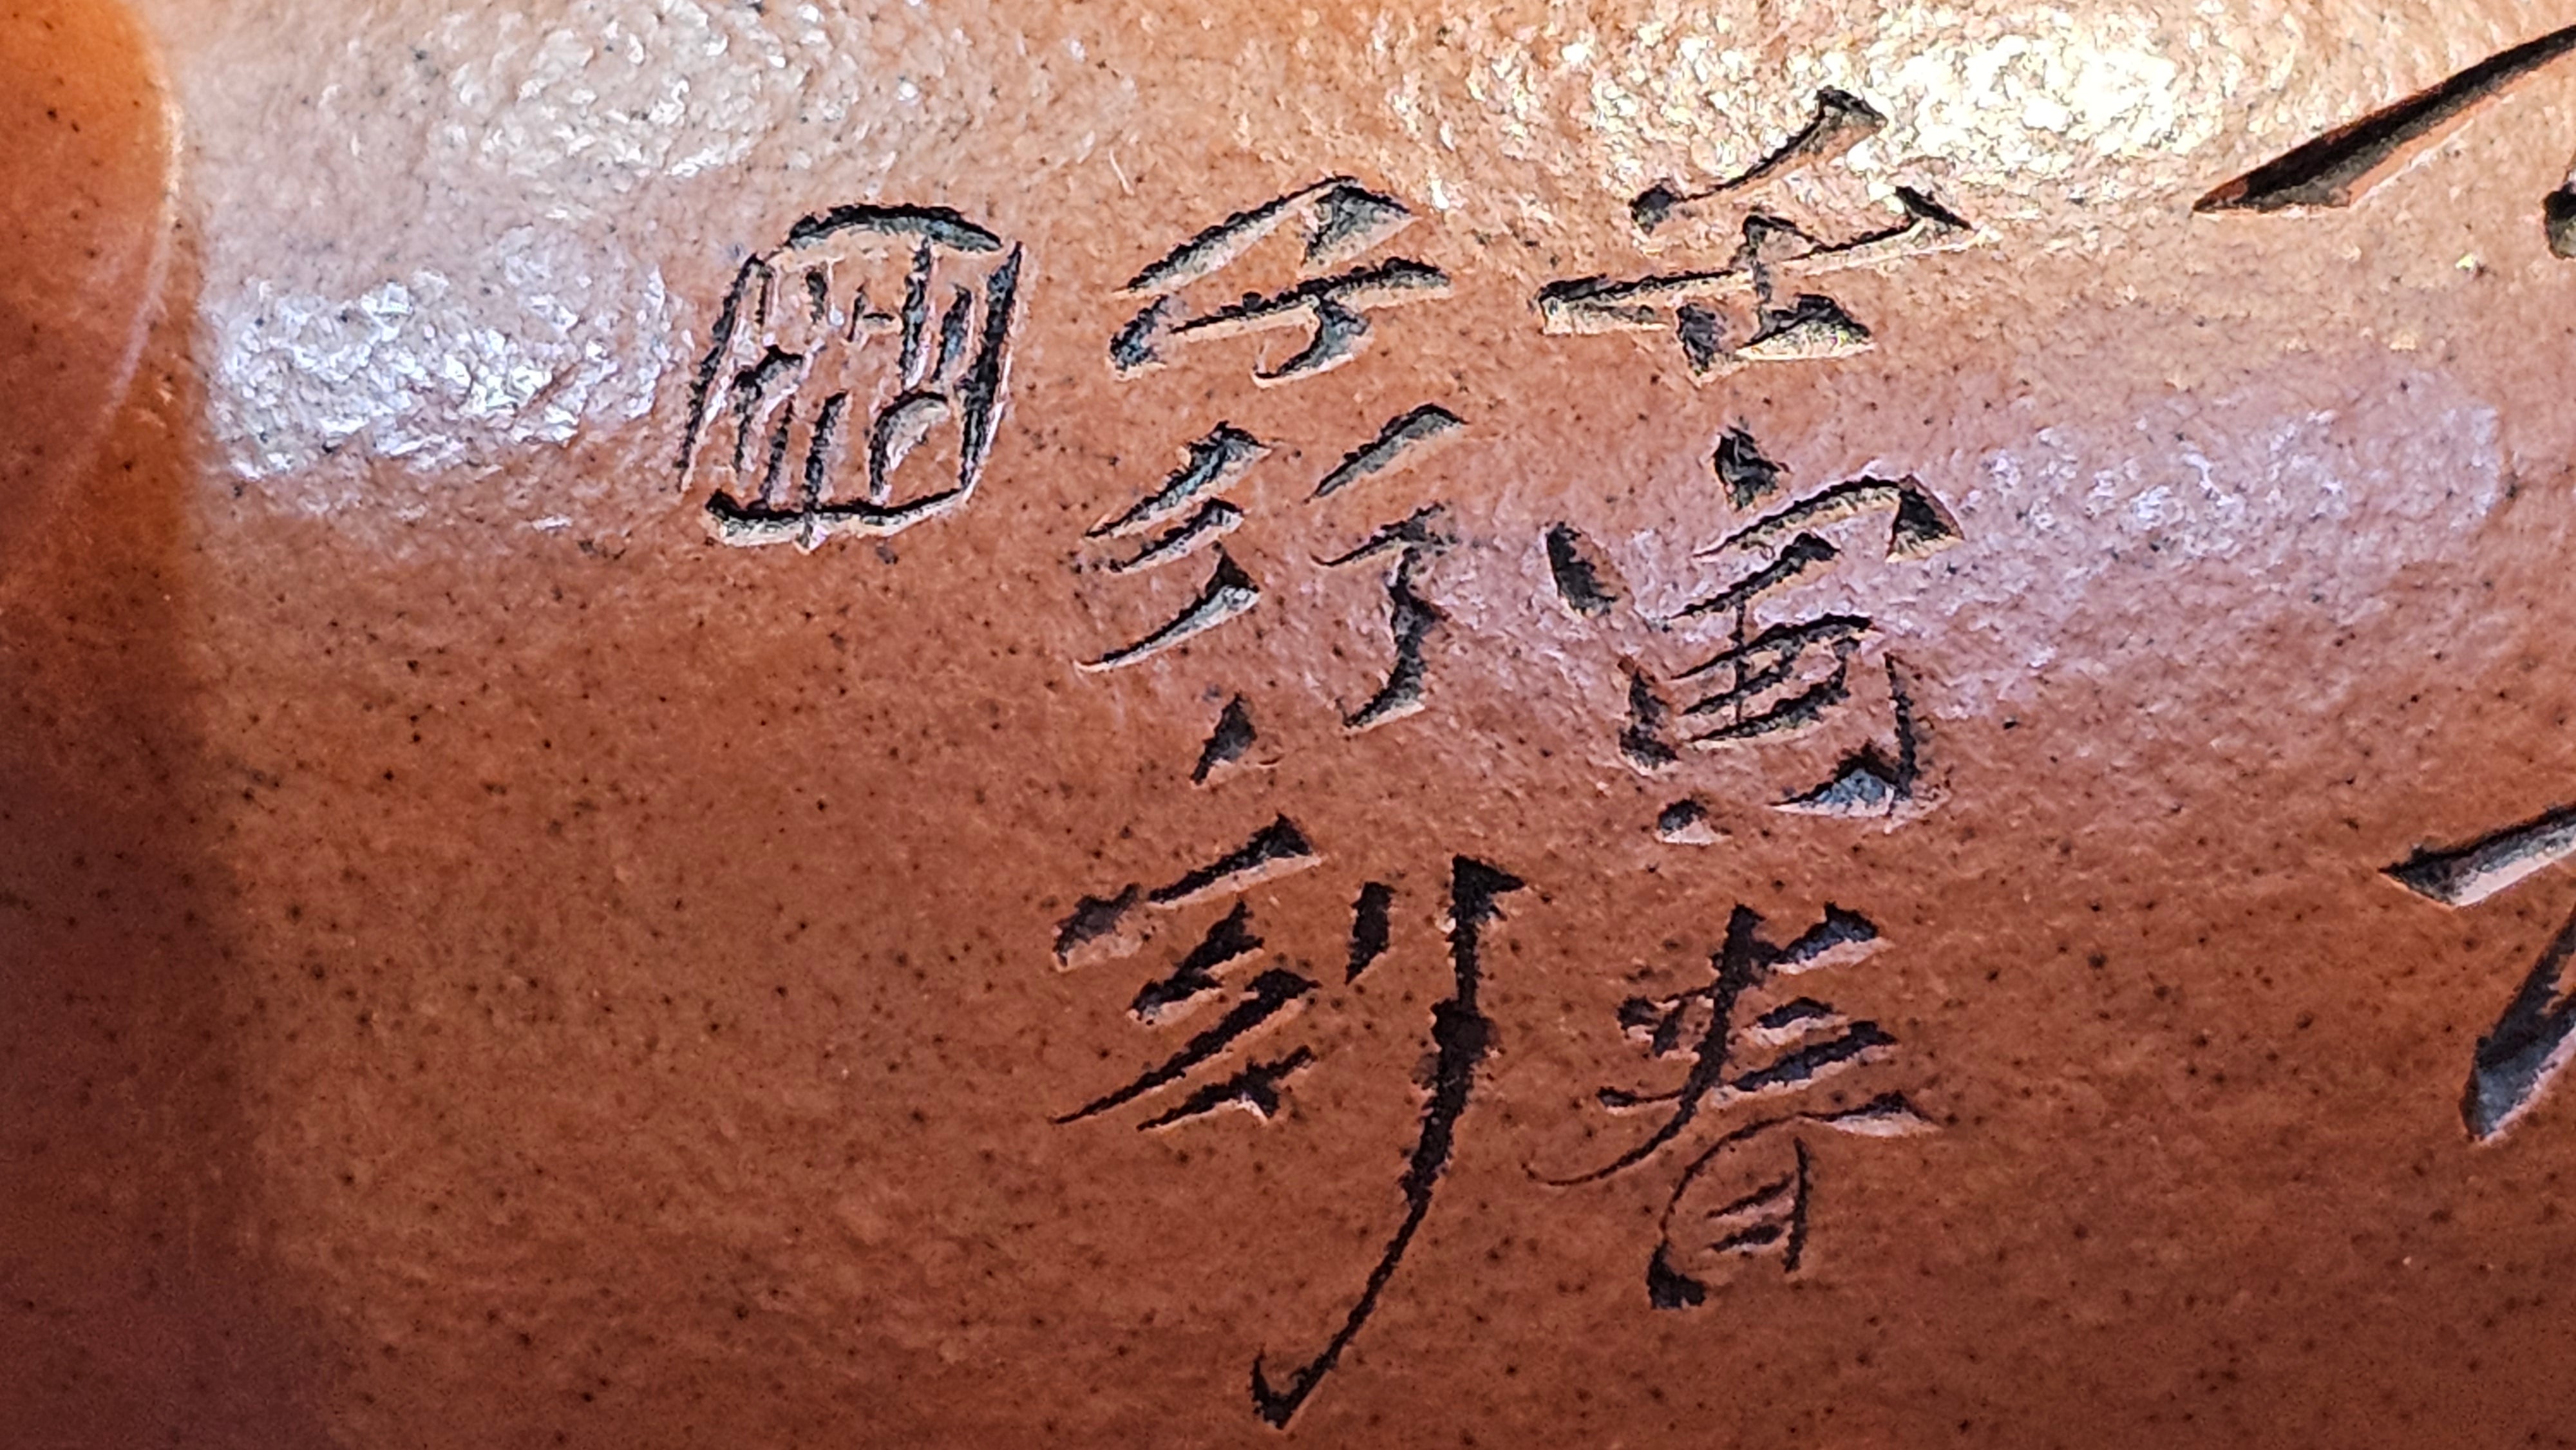 壬寅春
子行刻